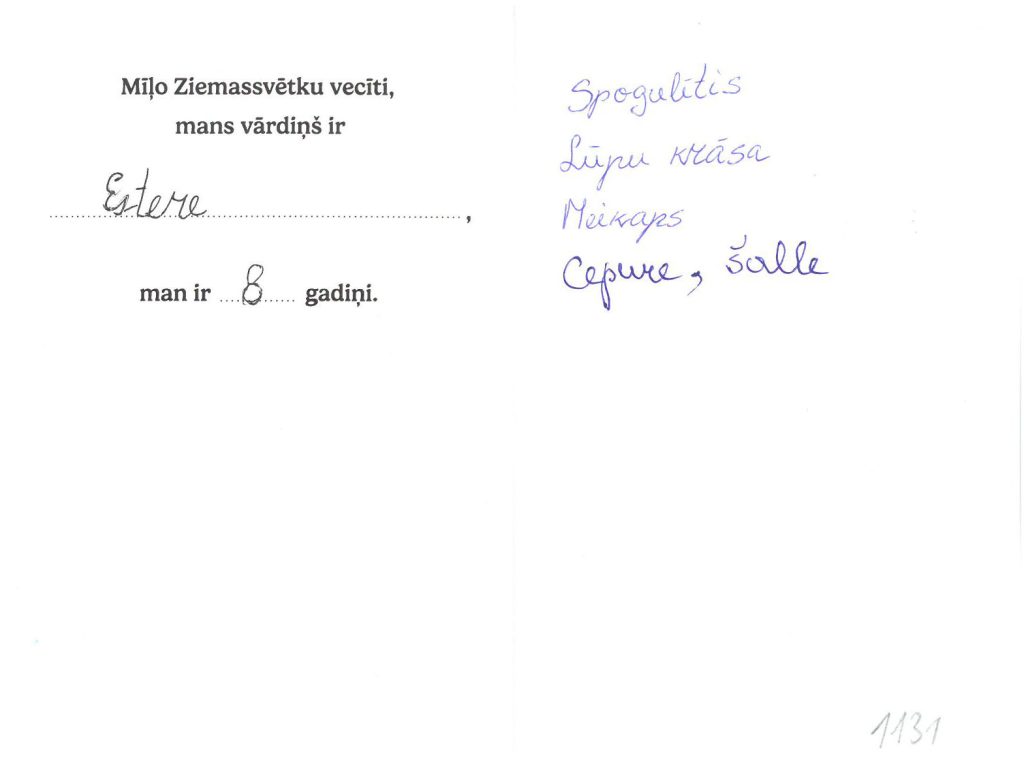 Mīļo Ziemassvētku vecīti,
mans vārdiņš ir
Estere,
man ir 8 gadiņi.
Spogulītis
Lūpu krāsa
Meikaps
Cepure, šalle
1131